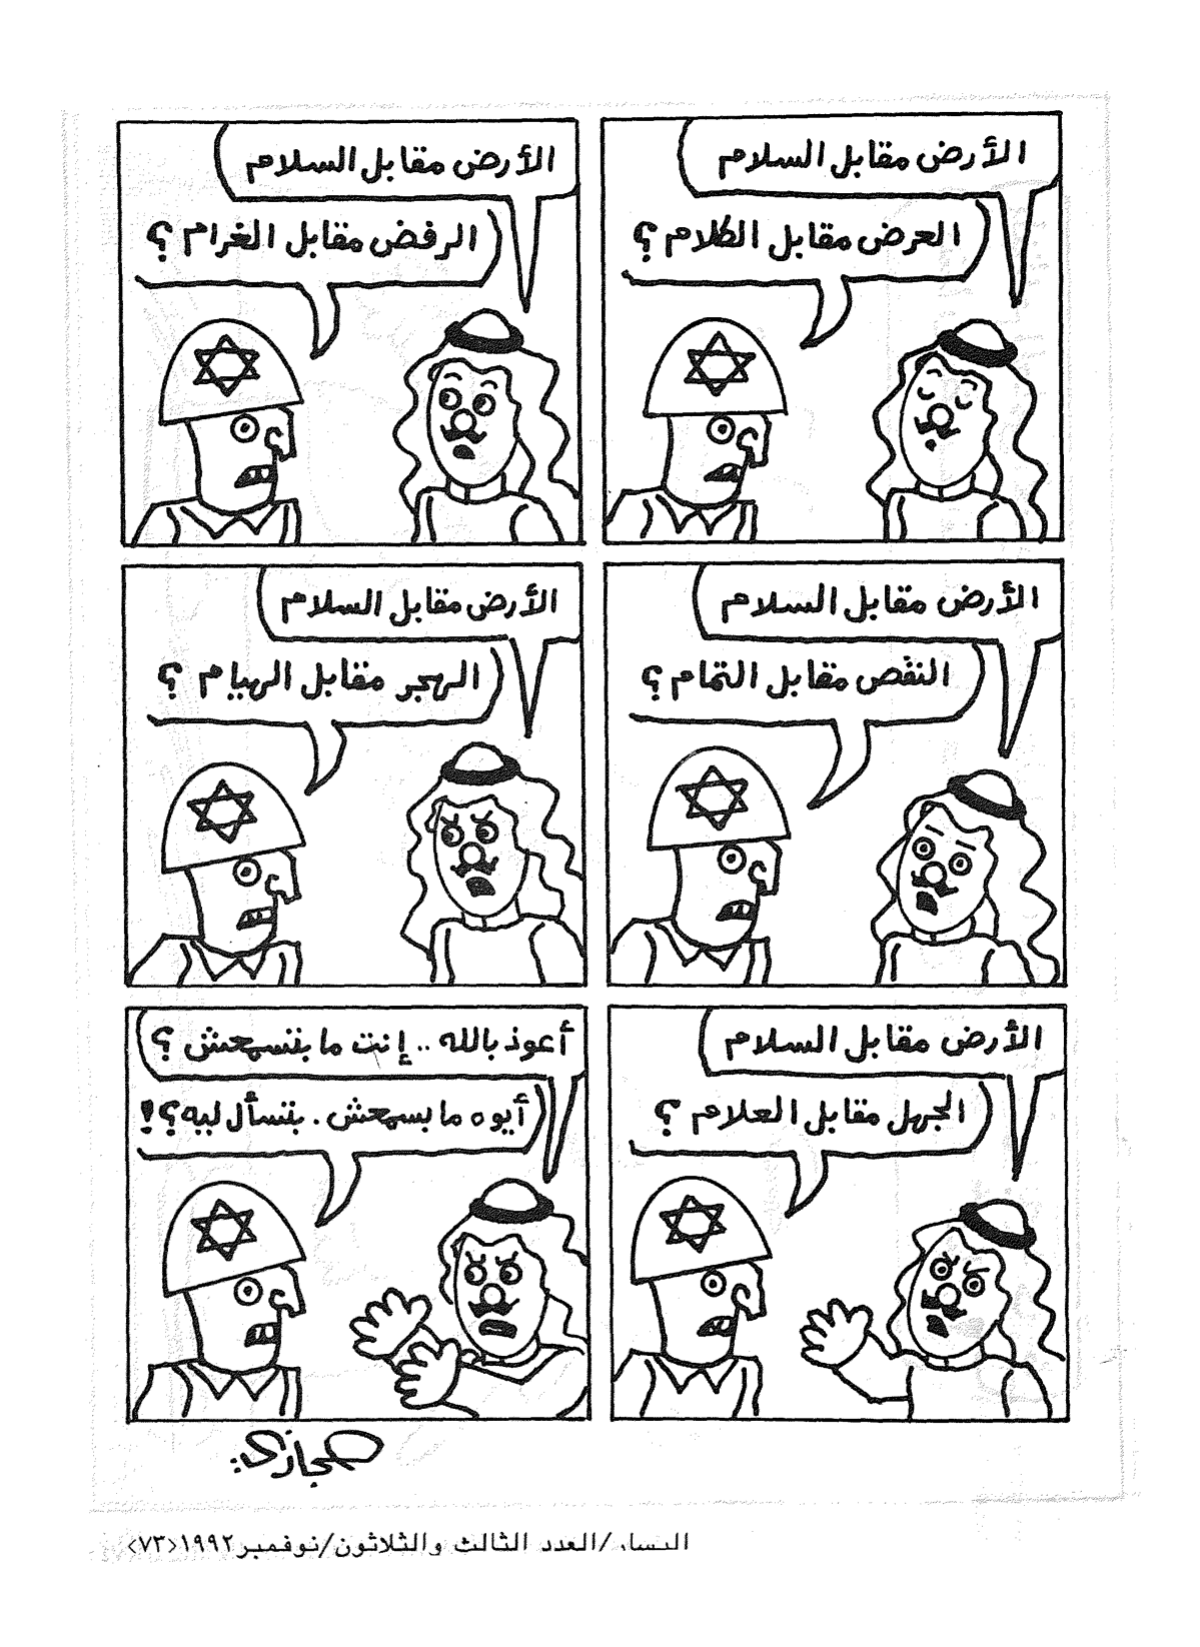 الأرض مقابل السلام
العرض مقابل الكلام ؟
الأرض مقابل السلام
الرفض مقابل الغرام ؟
الأرض مقابل السلام
النقص مقابل التمام ؟
الأرض مقابل السلام
الهجر مقابل الهيام ؟
الأرض مقابل السلام
الجهل مقابل العلام ؟
أعوذ بالله .. إنت ما بتسمعش ؟
أيوه ما بسمعش . بتسأل ليه ؟!
حجازي
اليسار/العدد الثالث والثلاثون/نوفمبر١٩٩٢<٧٣>